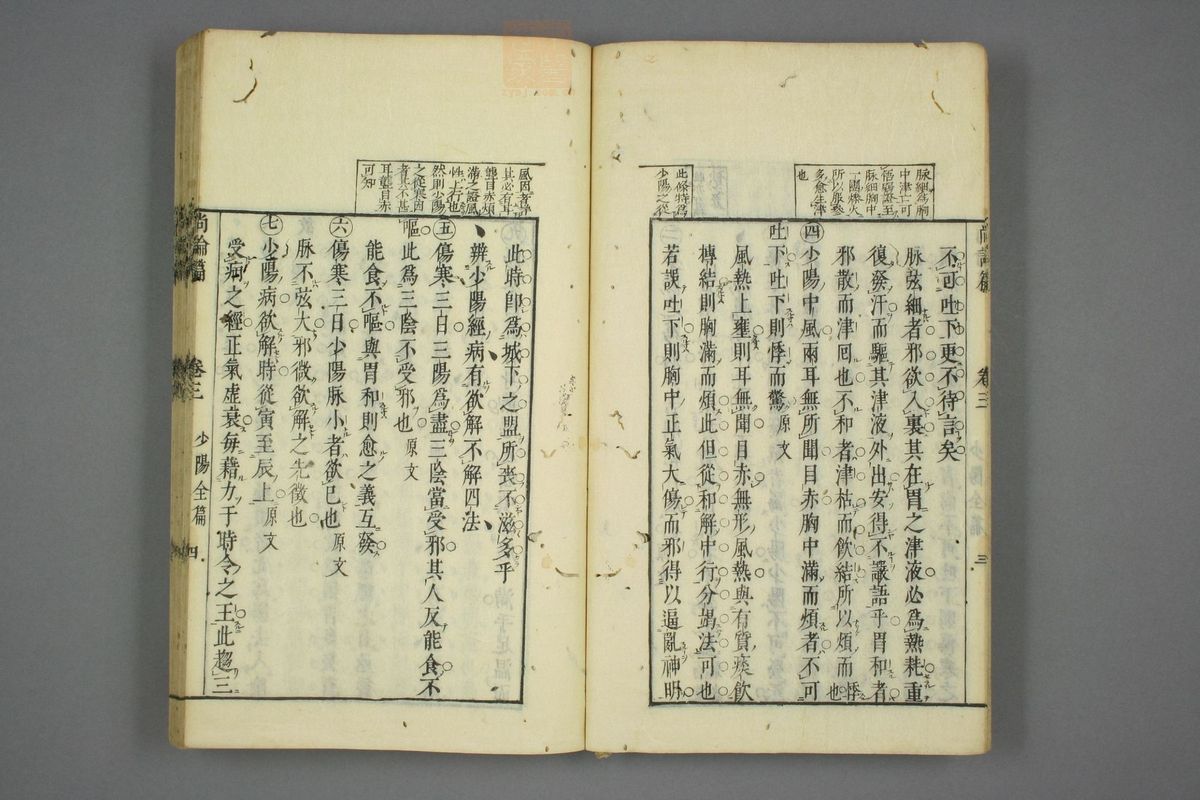 脉細爲胸
中津亡可
悟竊證至
脉細胸中
一團燥火
所以服參
多愈生津
也
尚論篇 卷三 少陽全篇 三
不可吐下更不待言矣
脉弦細者邪欲入裏其在胃之津液必爲熱耗重
復發汗而驅其津液外出安得不讝語乎胃和者
邪散而津回也不和者津枯而飲結所以煩而悸也
㊃少陽中風兩耳無所聞目赤胸中滿而煩者不可
吐下吐下則悸而驚 原文
風熱上壅則耳無聞目赤無形風熱與有質痰飲
摶結則胸滿而煩此但從和解中行分竭法可也
若誤吐下則胸中正氣大傷而邪得以逼亂神明
此條特爲
少陽之從
風因者詳
其必有耳
聾目赤煩
滿之證風
性上行也
然則少陽
之從寒因
者其不甚
耳聾目赤
可知
此時卽爲城下之盟所喪不滋多乎
辨少陽經病有欲解不解四法
㊄傷寒三日三陽爲盡三陰當受邪其人反能食不
嘔此爲三陰不受邪也 原文
能食不嘔與胃和則愈之義互發
㊅傷寒三日少陽脉小者欲已也 原文
脉不弦大邪微欲解之先徵也
㊆少陽病欲解時從寅至辰上 原文
受病之經正氣虛衰每藉力于時令之王此趨三
尚論篇 卷三 少陽全篇 四